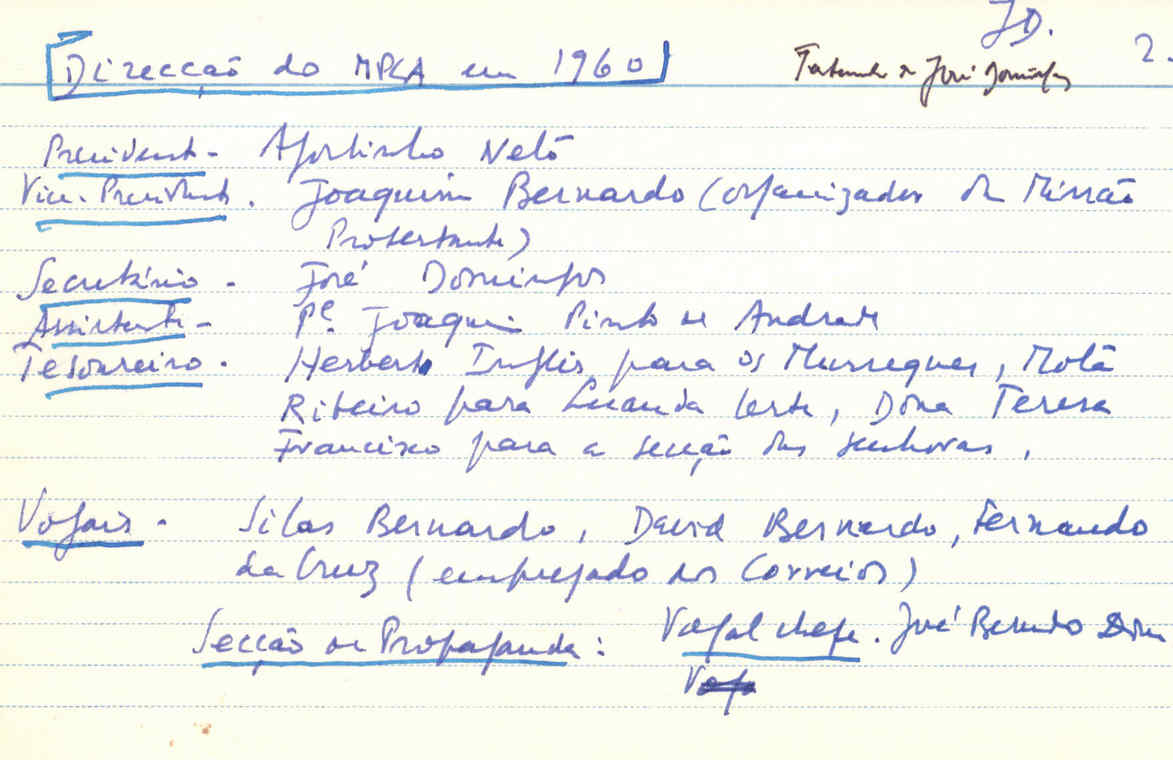 JD.
2.
Direcção do MPLA em 1960
Testemunho de José Domingos
Presidente - Agostinho Neto
Vice-Presidente. Joaquim Bernardo (organizador da Missão
Protestante)
Secretário - José Domingos
Assistente - Pe. Joaquim Pinto de Andrade
Tesoureiro. Herberto Inglês para os Musseques, Mota
Ribeiro para Luanda leste, Dona Teresa
Francisco para a secção das senhoras.
Vogais - Silas Bernardo, David Bernardo, Fernando
da Cruz (empregado dos Correios)
Secção de Propaganda: Vogal chefe. José Bernardo